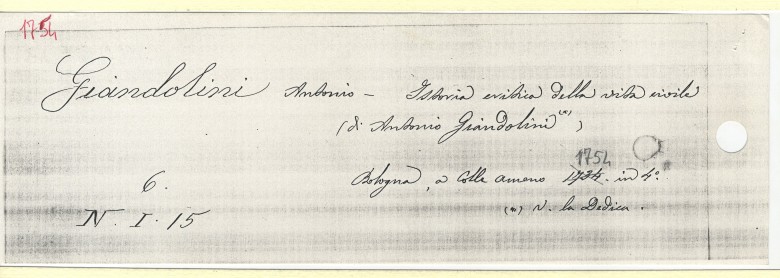 1754
Giandolini Antonio – Istoria critica della vita civile
(di Antonio Giandolini (*))
1754
6. Bologna, a Colle ameno 1734. in 4°.
N. I. 15 (*) V. la Dedica.